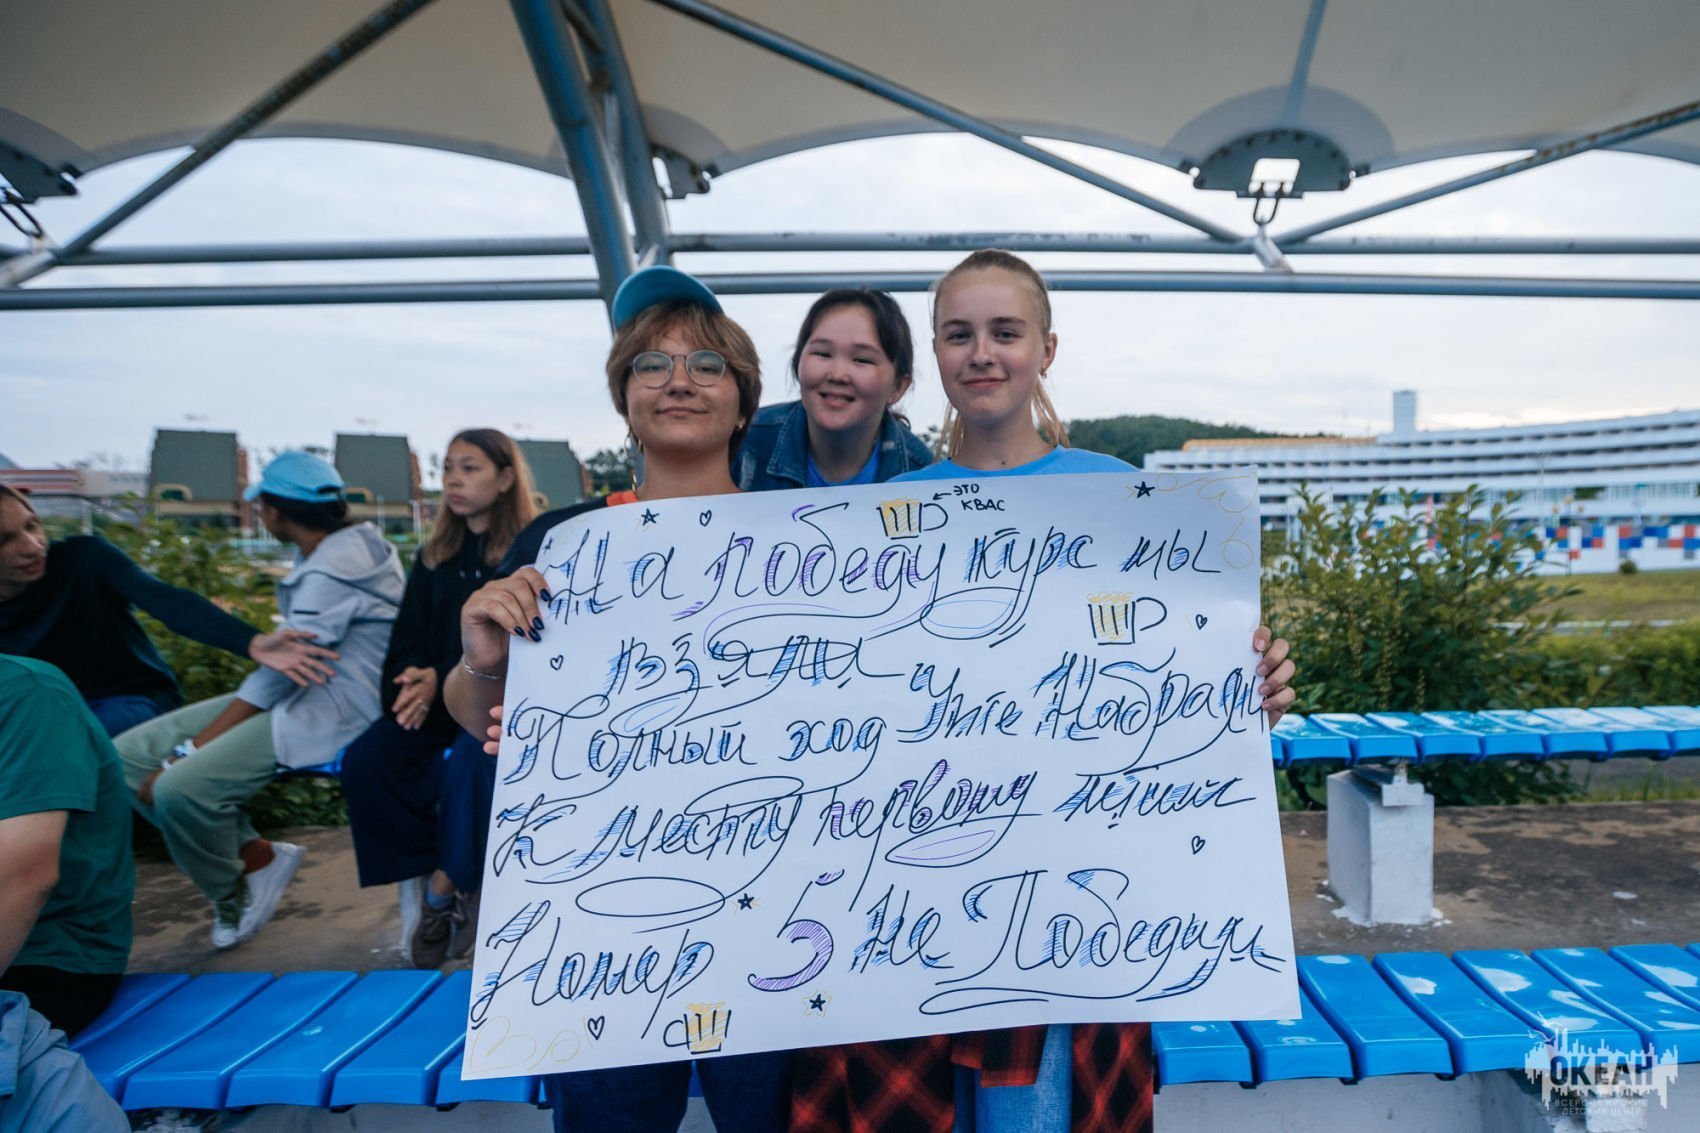 ← ЭТО
КВАС
На победу курс мы
взяли
Полный ход Уже Набрали
К месту первому
Номер 5 Не Победим
ОКЕАН
ВСЕРОССИЙСКИЙ
ДЕТСКИЙ ЦЕНТР